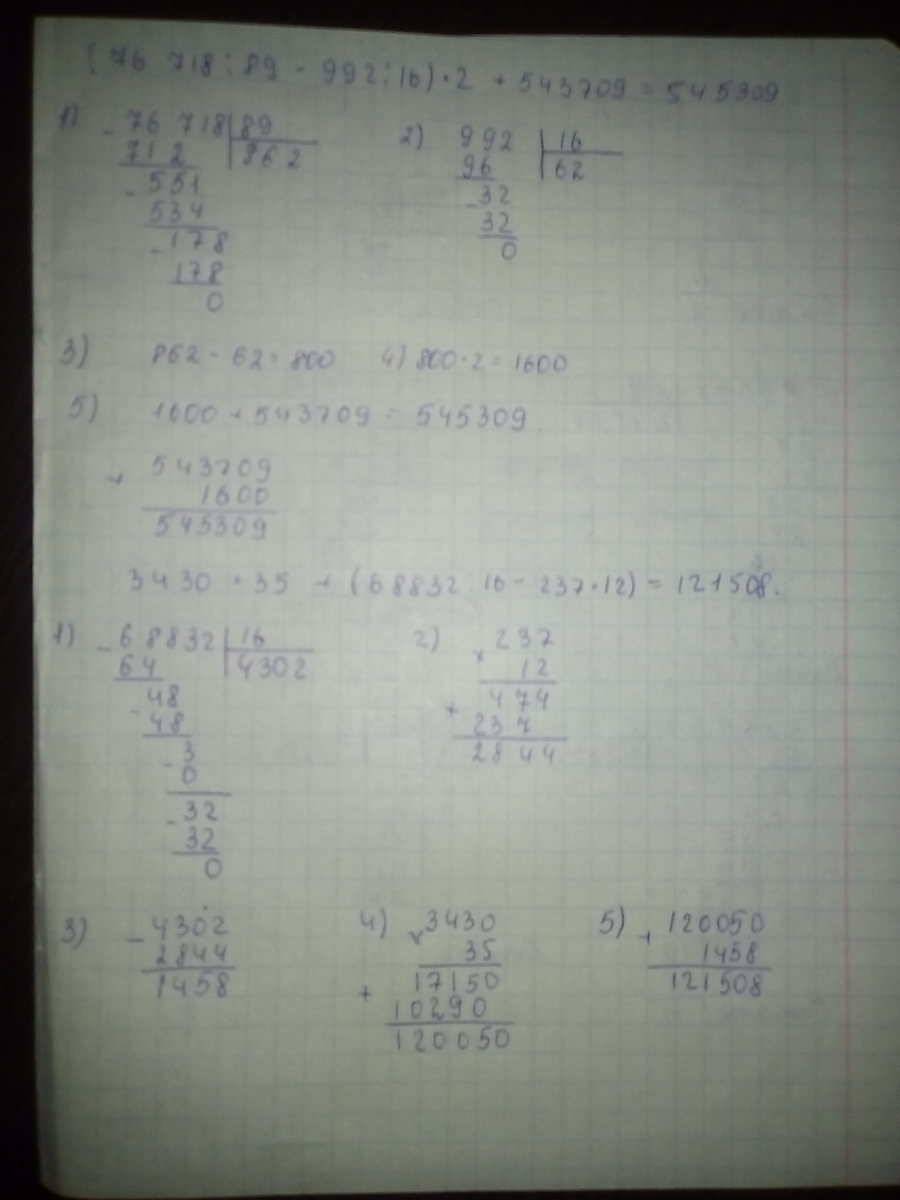 (76 718 : 89 - 992 : 16) · 2 + 543709 = 545309
1) - 76 718 | 89
712 | 862
- 551
534
- 178
178
0
2) 992 | 16
96 | 62
- 32
32
0
3) 862 - 62 = 800 4) 800 · 2 = 1600
5) 1600 + 543709 = 545309
+ 543709
1600
545309
3430 · 35 + (68832 : 16 - 237 · 12) = 121508.
1) - 68832 | 16
64 | 4302
- 48
48
- 3
0
- 32
32
0
2) × 237
12
+ 474
237
2844
3) - 4302
2844
1458
4) × 3430
35
+ 17150
10290
120050
5) + 120050
1458
121508